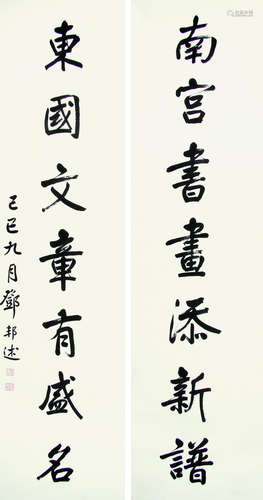 南宫書畫添新譜
東國文章有盛名
己巳九月鄧邦述